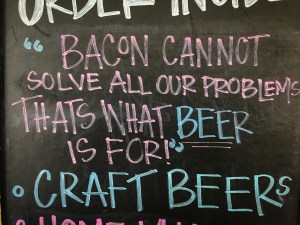 ORDER INSIDE
"BACON CANNOT
SOLVE ALL OUR PROBLEMS
THATS WHAT BEER
IS FOR!"
• CRAFT BEERS